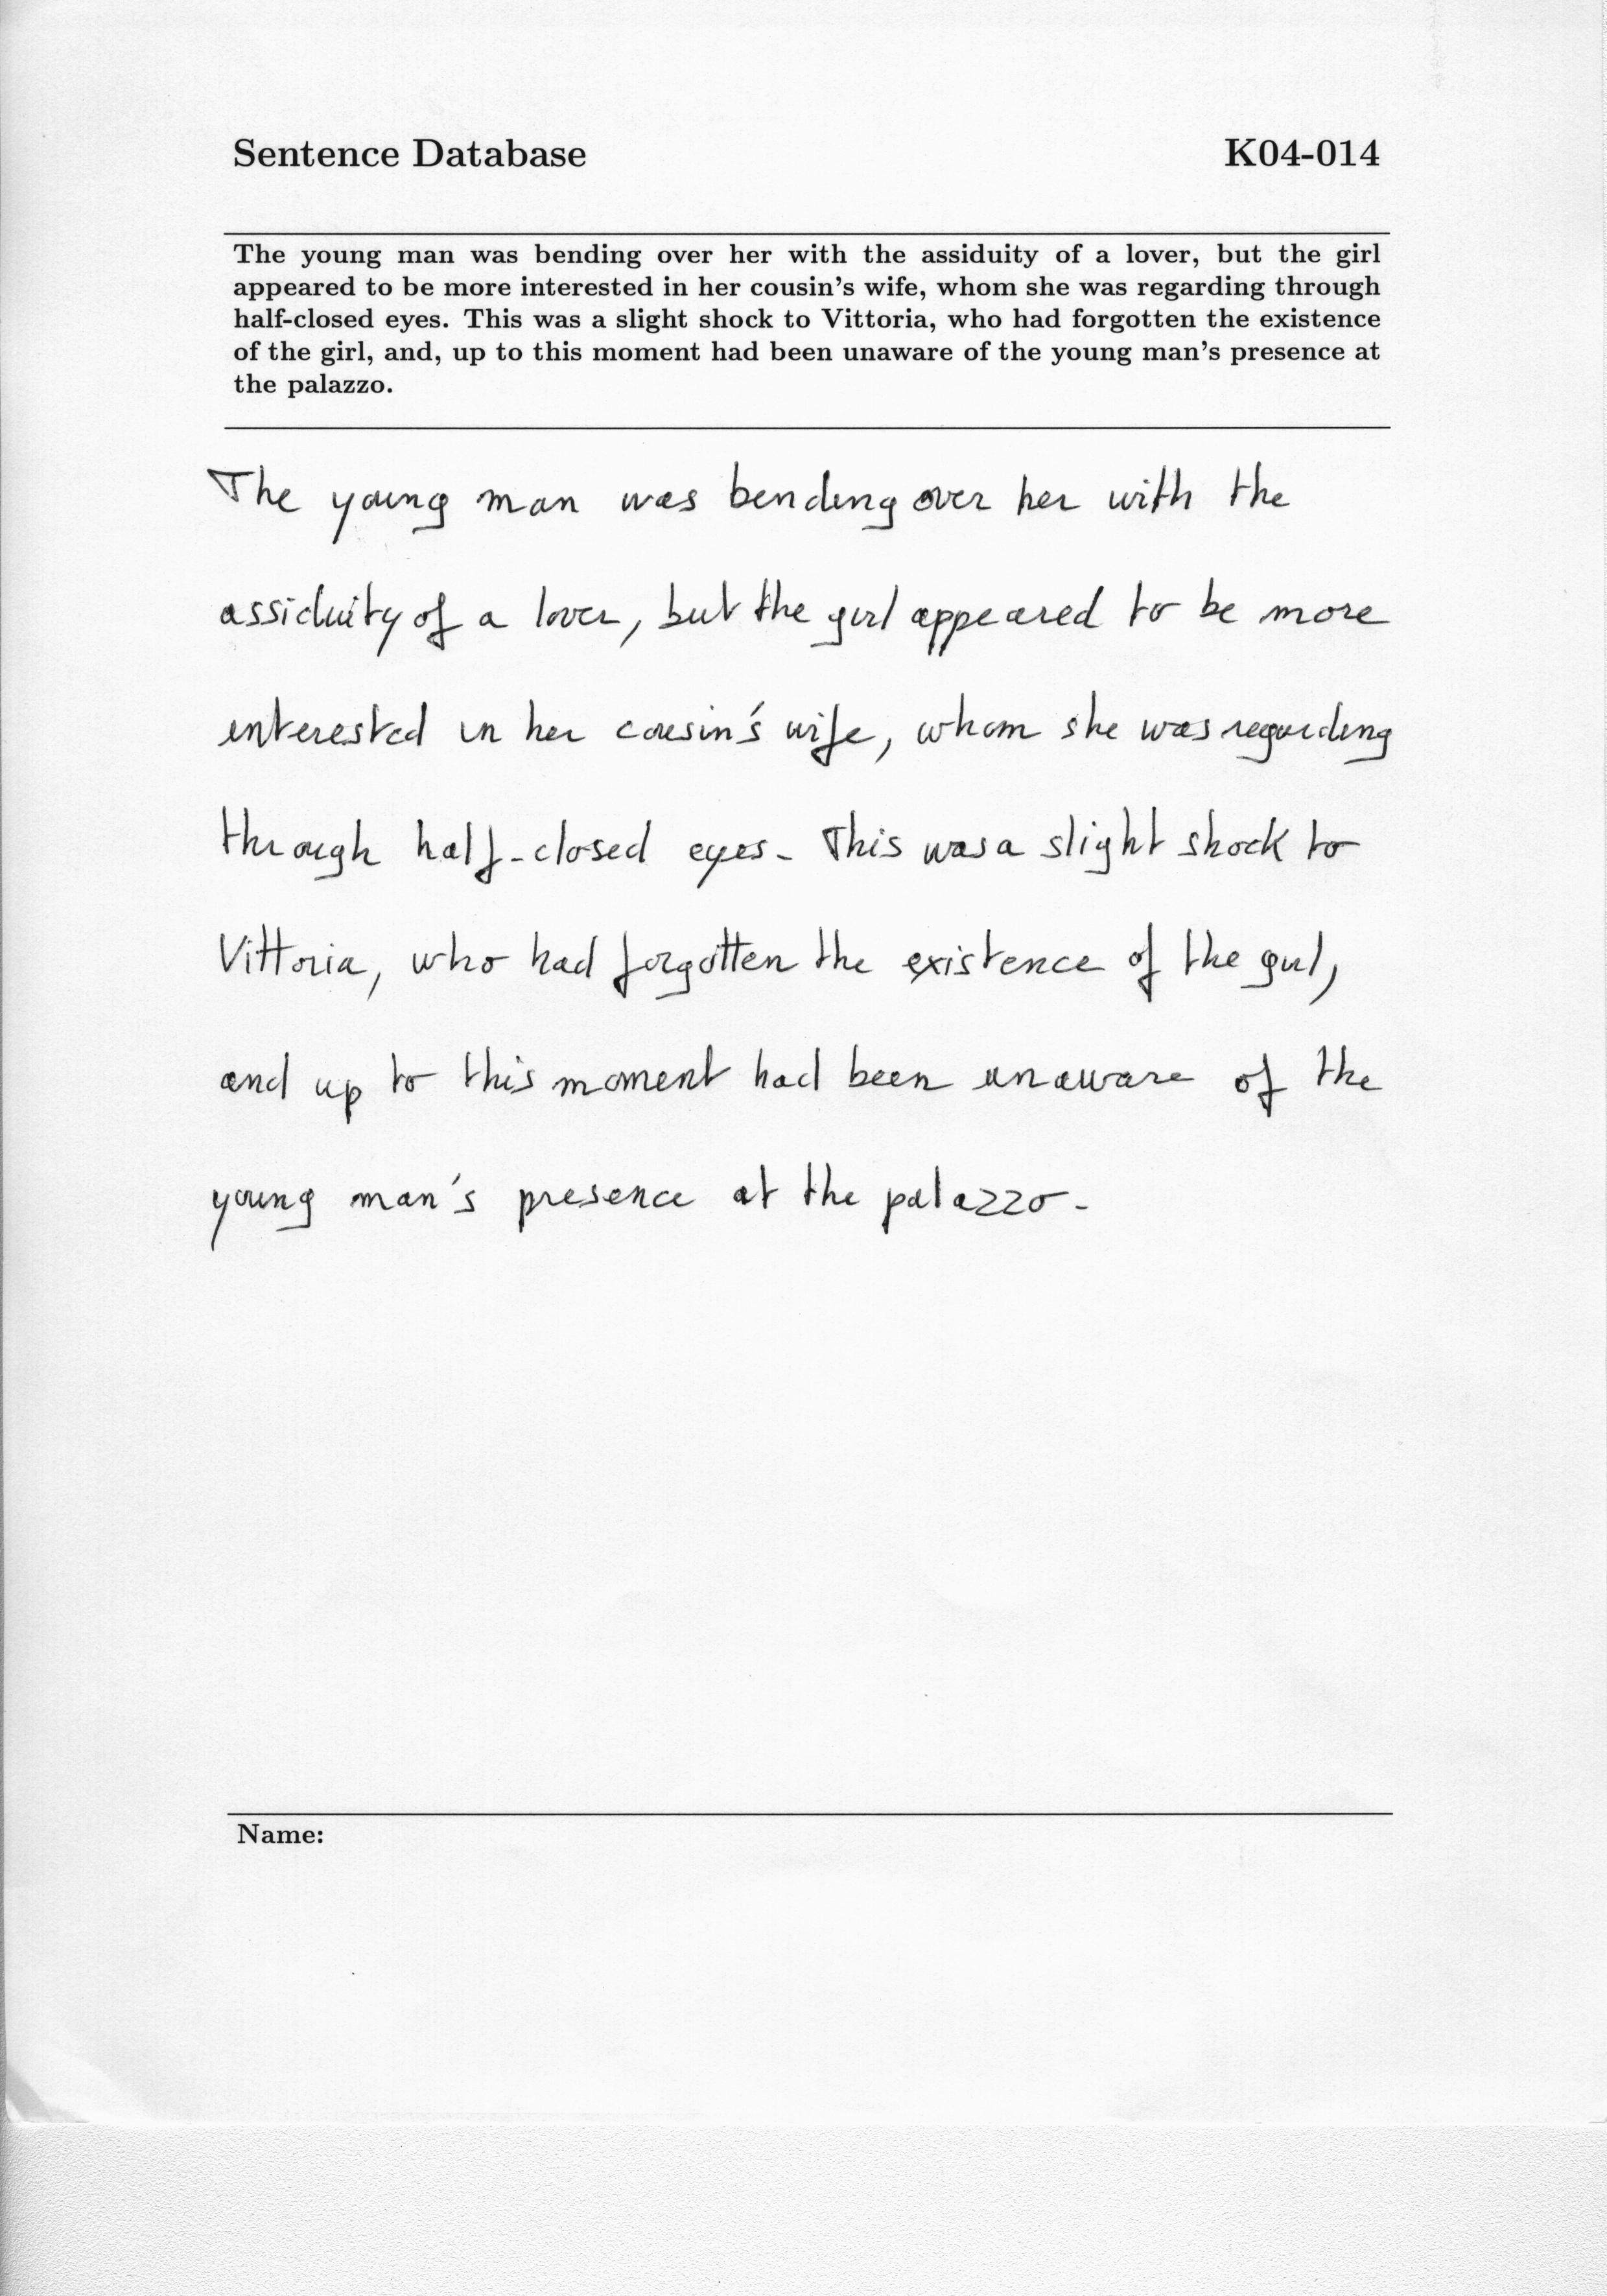 Sentence Database K04-014
The young man was bending over her with the assiduity of a lover, but the girl
appeared to be more interested in her cousin's wife, whom she was regarding through
half-closed eyes. This was a slight shock to Vittoria, who had forgotten the existence
of the girl, and, up to this moment had been unaware of the young man's presence at
the palazzo.
The young man was bending over her with the
assiduity of a lover, but the girl appeared to be more
interested in her cousin's wife, whom she was regarding
through half-closed eyes. This was a slight shock to
Vittoria, who had forgotten the existence of the girl,
and up to this moment had been unaware of the
young man's presence at the palazzo.
Name: